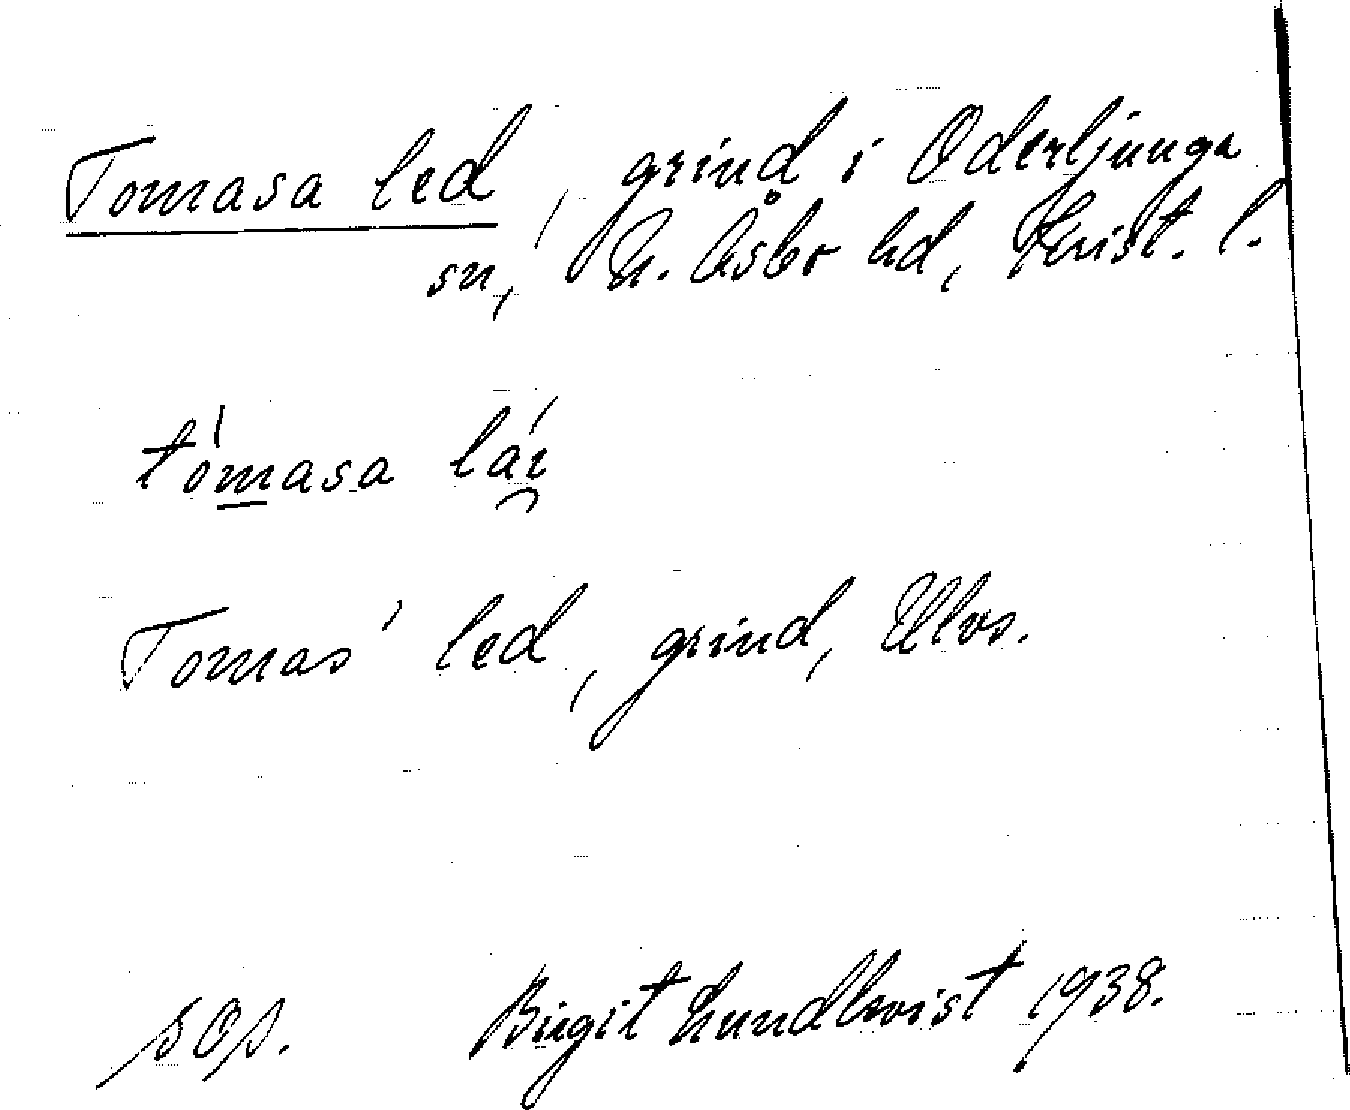 Tomasa led, grind i Oderljunga
sn, N. Åsbo hd, Krist. l.
tómasa lái
Tomas' led, grind, Ulvs.
sos.
Birgit Lundkvist 1938.